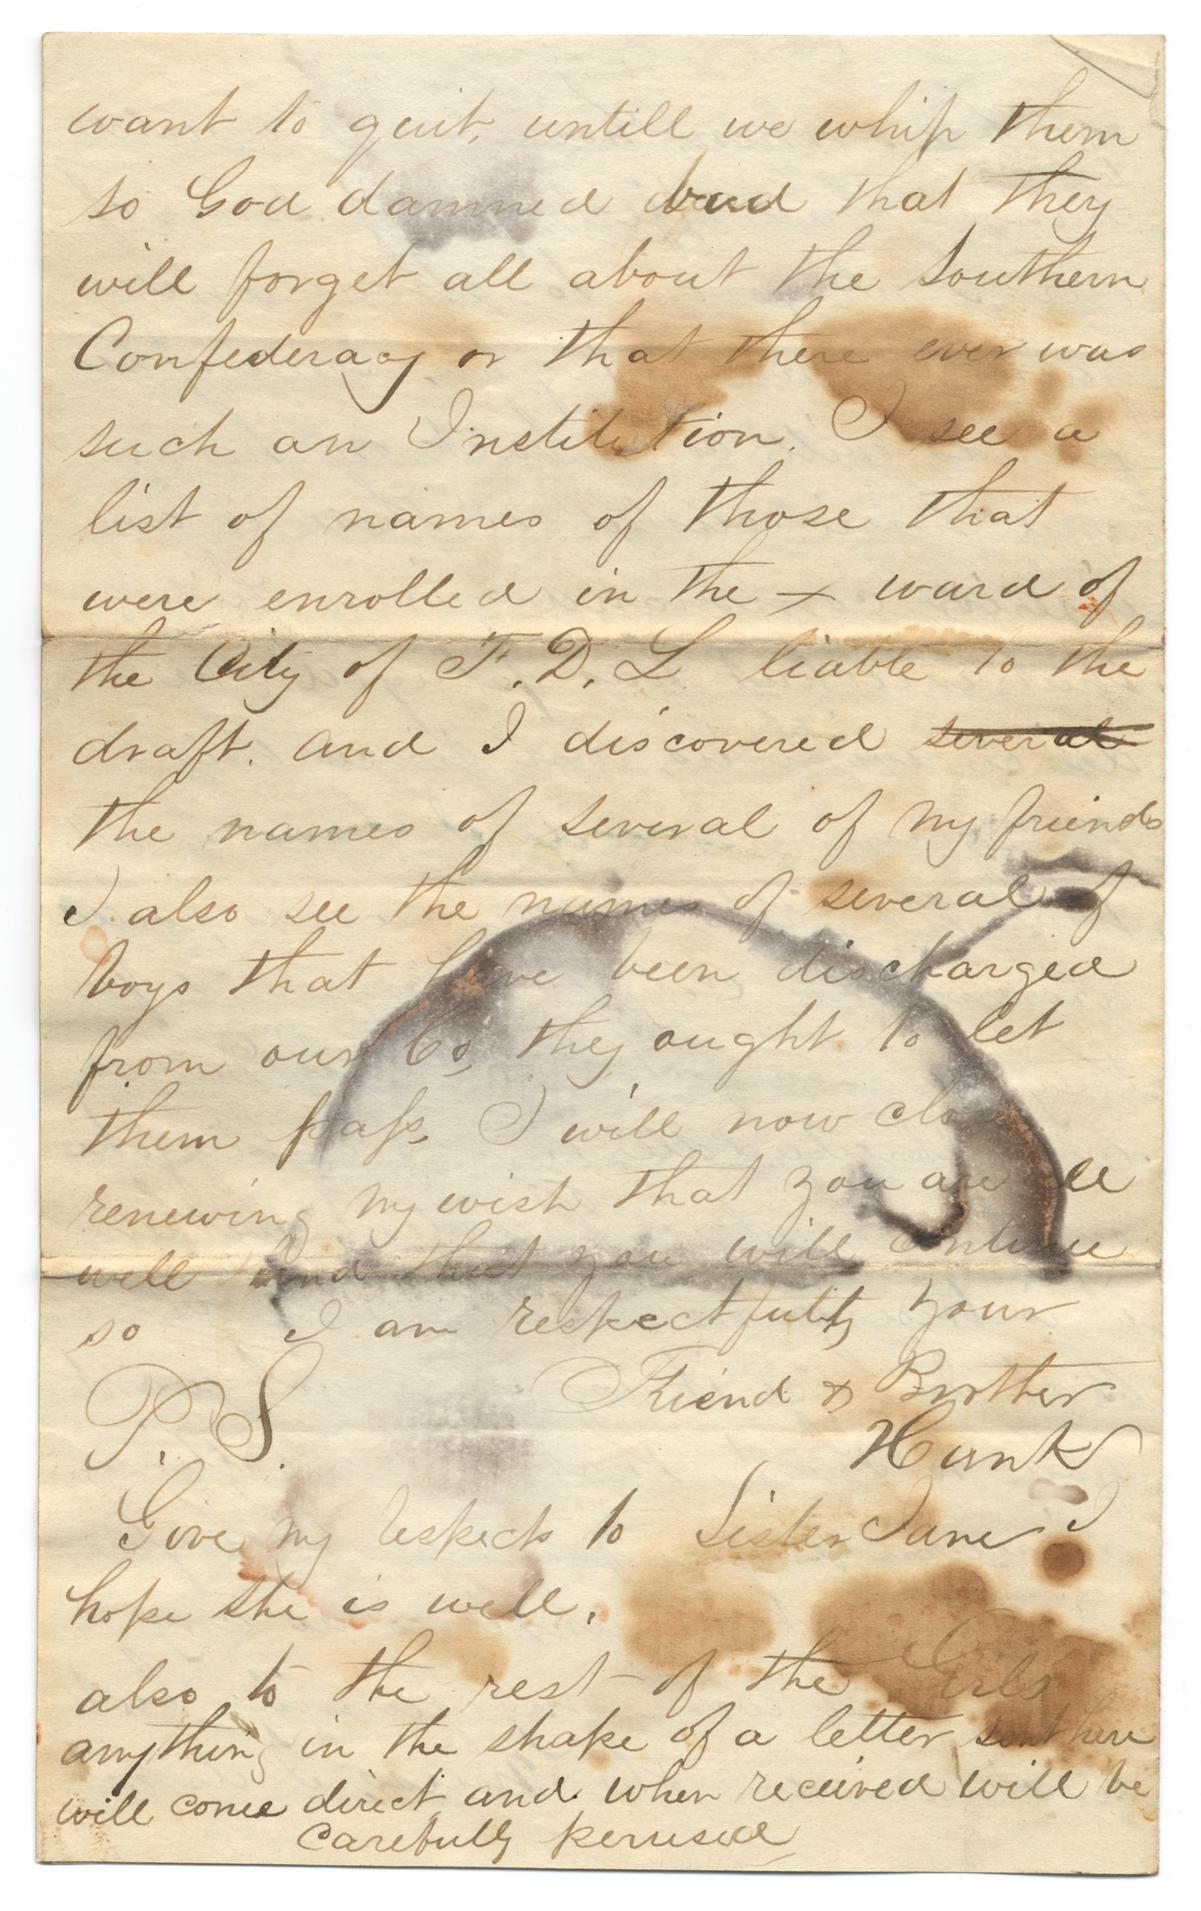 want to quit, untill we whip them
so God damned bad that they
will forget all about the Southern
Confederacy or that there ever was
such an Institution. I see a
list of names of those that
were enrolled in the + ward of
the City of F. D. L liable to the
draft. and I discovered several
the names of several of my friends
I also see the names of several of
boys that have been discharged
from our Co, they ought to let
them pass. I will now close
renewing my wish that you are all
well and that you will continue
so I am respectfully your
Friend & Brother
P. S. Hank
Give my respects to Sister Jane I
hope she is well.
also to the rest of the Girls
anything in the shape of a letter sent here
will come direct and when received will be
carefully perused